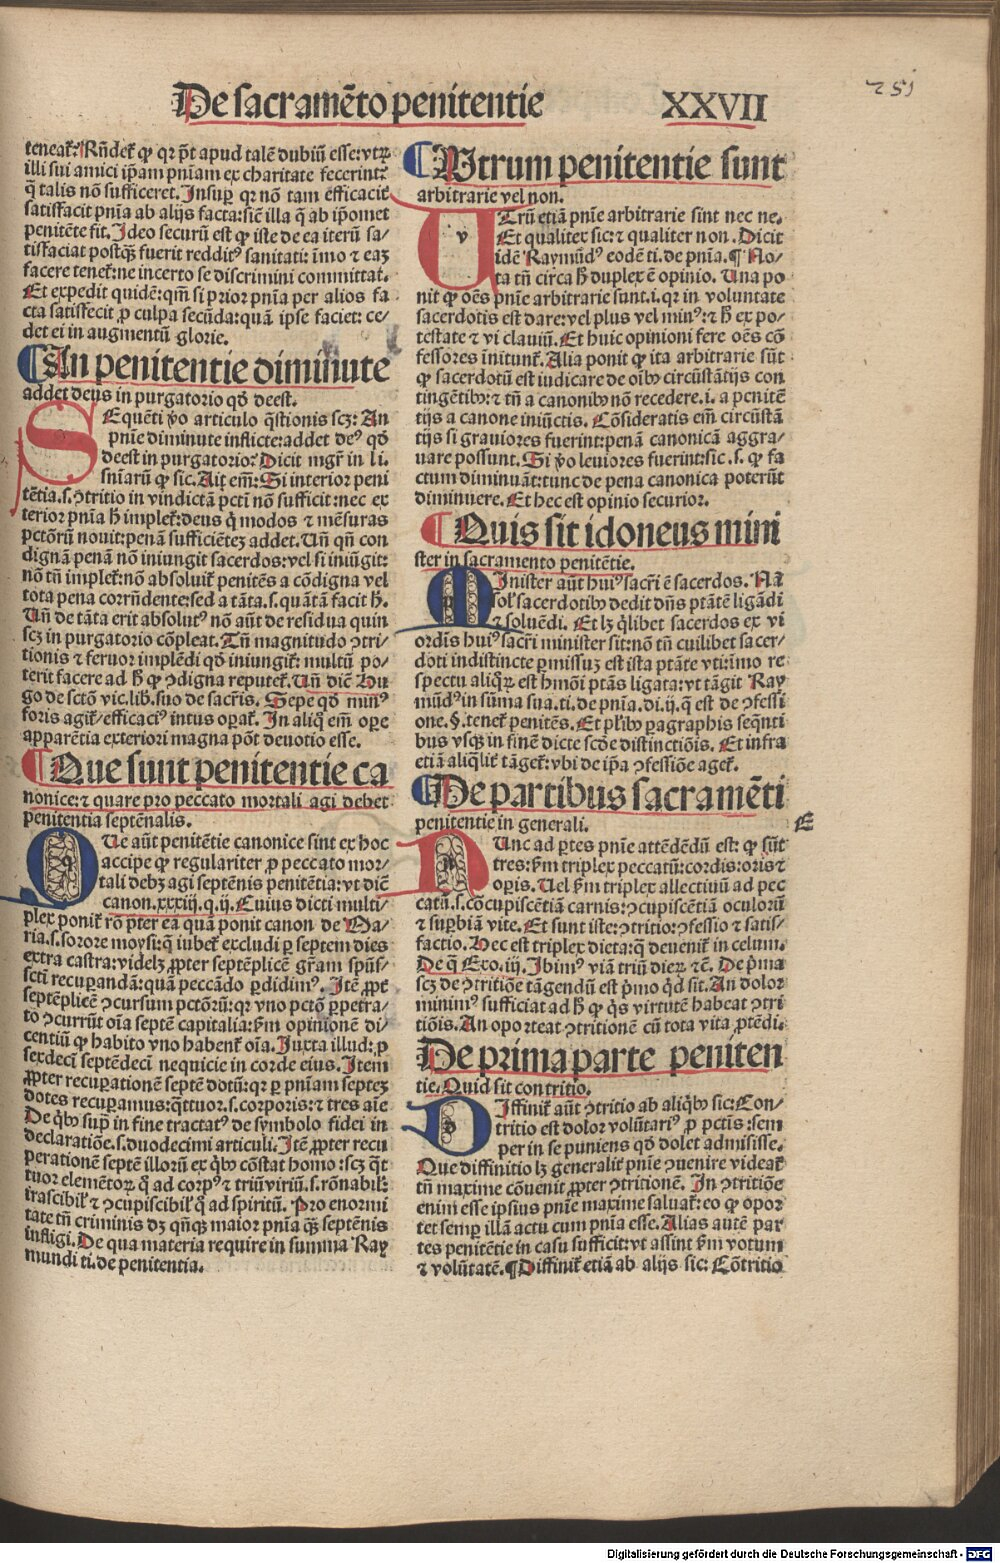 De sacramẽto penitentie XXVII
251
teneat̃. Rñdet̃ ꝙ qꝛ pñt apud talẽ dubiũ esse: vtꝝ
illi sui amici ip̃am pniam ex charitate fecerint:
q̃ talis nõ sufficeret. Insuꝑ qꝛ nõ tam efficacit̃
satisfacit pnia ab alijs facta: sicẽ illa q̃ ab ip̃omet
penitẽte fit. Ideo securũ est ꝙ iste de ea iterũ sa/
tisfaciat postq̃ȝ fuerit redditꝰ sanitati: imo ⁊ eaȝ
facere tenet̃: ne incerto se discrimini committat.
Et expedit quidẽ: qm̃ si prior pnia per alios fa
cta satisfecit ꝓ culpa secũda: quã ipse faciet: ce/
det ei in augmentũ glorie.
¶ An penitentie diminute
addet deus in purgatorio qd̃ deest.
SEquẽti ṽo articulo q̃stionis scȝ: An
pnie diminute inflicte: addet deꝰ qd̃
deest in purgatorio: Dicit mgr̃ in li.
sniarũ ꝙ sic. Ait em̃: Si interior peni
tẽtia. s. ꝯtritio in vindictã pcti nõ sufficit: nec ex
terior pnia h̃ implet̃: deus q̃ modos ⁊ mẽsuras
pctõrũ nouit: penã sufficiẽteȝ addet. Uñ qñ con
dignã penã nõ iniungit sacerdos: vel si iniũgit:
nõ tñ implet̃: nõ absoluit̃ penitẽs a cõdigna vel
tota pena corrñdente: sed a tãta. s. quãtã facit h̃.
Uñ de tãta erit absolutꝰ nõ aũt de residua quin
scȝ in purgatorio cõpleat. Tñ magnitudo ꝯtri/
tionis ⁊ feruor implẽdi qd̃ iniungit̃: multũ po/
terit facere ad h̃ ꝙ ꝯdigna reputet̃. Uñ dic̃ Hu
go de sctõ vic. lib. suo de sacr̃is. Sepe qd̃ minꝰ
foris agit̃/efficaciꝰ intus oꝑat̃. In aliq̃ em̃ oꝑe
apparẽtia exteriori magna põt deuotio esse.
¶ Que sunt penitentie ca
nonice: ⁊ quare pro peccato mortali agi debet
penitentia septẽnalis.
QUe aũt penitẽtie canonice sint ex hoc
accipe ꝙ regulariter ꝓ peccato mor/
tali debȝ agi septẽnis penitẽtia: vt dic̃
canon. xxxiij. q. ij. Cuius dicti multi/
plex ponit̃ rõ pter eã quã ponit canon de Ma/
ria. s. sorore moysi: q̃ iubet̃ excludi ꝑ septem dies
extra castra: videlȝ ꝓpter septẽplicẽ gr̃am spũs/
sctĩ recuperandã: quã peccãdo ꝑdidimꝰ. Itẽ ꝓpt̃
septẽplicẽ ꝯcursum pctõrũ: qꝛ vno pctõ ꝑpetra/
to ꝯcurrũt oĩa septẽ capitalia: ẜm opinionẽ di/
centiũ ꝙ habito vno habent̃ oĩa. Iuxta illud: ꝓ
sexdecĩ septẽdecĩ nequicie in corde eius. Item
ꝓpter recuꝑationẽ septẽ dotũ: qꝛ ꝑ pniam septeȝ
dotes recuꝑamus: q̃ttuor. s. corporis: ⁊ tres aĩe
De q̃bꝰ supꝰ in fine tractatꝰ de symbolo fidei in
declaratiõe. s. duodecimi articuli. Itẽ ꝓpter recu
perationẽ septẽ illorũ ex q̃bꝰ cõstat homo: scȝ q̃t
tuor elemẽtoꝝ q̃ ad corpꝰ ⁊ triũ viriũ. s. rõnabil̃:
irascibil̃ ⁊ ꝯcupiscibil̃ q̃ ad spiritũ. Pro enormi
tate tñ criminis dȝ qñqȝ maior pnia q̃ȝ septẽnis
infligi. De qua materia require in summa Ray
mundi ti. de penitentia.
¶ Utrum penitentie sunt
arbitrarie vel non.
UTrũ etiã pnie arbitrarie sint nec ne.
Et qualiter sic: ⁊ qualiter non. Dicit
idẽ Raymũdꝰ eodẽ ti. de pnia. ¶ No/
ta tñ circa h̃ duplex ẽ opinio. Una po
nit ꝙ oẽs pnie arbitrarie sunt. i. qꝛ in voluntate
sacerdotis est dare: vel plus vel minꝰ: ⁊ h̃ ex po/
testate ⁊ vi clauiũ. Et huic opinioni fere oẽs cõ
fessores ĩnitunt̃. Alia ponit ꝙ ita arbitrarie sũt
ꝙ sacerdotũ est iudicare de oĩbꝰ circũstãtijs con
tingẽtibꝰ: ⁊ tñ a canonibꝰ nõ recedere. i. a penitẽ
tijs a canone iniũctis. Cõsideratis em̃ circũstã
tijs si grauiores fuerint: penã canonicã aggra/
uare possunt. Si ṽo leuiores fuerint: sic. s. ꝙ fa
ctum diminuãt: tunc de pena canonica poterũt
diminuere. Et hec est opinio securior.
¶ Quis sit idoneus mini
ster in sacramento penitẽtie.
MInister aũt huiꝰ sacr̃i ẽ sacerdos. Nã
sol̃ sacerdotibꝰ dedit dñs ptãtẽ ligãdi
⁊ soluẽdi. Et lȝ q̃libet sacerdos ex vi
ordĩs huiꝰ sacr̃i minister sit: nõ tñ cuilibet sacer/
doti indistincte ꝑmissuȝ est ista ptãte vti: imo re
spectu aliq̃ꝝ est hmõi ptãs ligata: vt tãgit Ray
mũdꝰ in sũma sua. ti. de pnia. di. ij. q̃ est de ꝯfessi
one. §. tenet̃ penitẽs. Et pl̃ibꝰ ꝑagraphis seq̃nti
bus vsqȝ in finẽ dicte scđe distinctiõis. Et infra
etiã aliq̃lit̃ tãget̃: vbi de ip̃a ꝯfessiõe aget̃.
¶ De partibus sacramẽti
penitentie in generali.
E
NUnc ad ꝑtes pnie attẽdẽdũ est: ꝙ sũt
tres: ẜm triplex peccatũ: cordis: oris ⁊
oꝑis. Uel ẜm triplex allectiuũ ad pec
catũ. s. cõcupiscẽtiã carnis: ꝯcupiscẽtiã oculorũ
⁊ suꝑbiã vite. Et sunt iste: ꝯtritio: ꝯfessio ⁊ satis/
factio. Hec est triplex dieta: q̃ deuenit̃ in celum.
De q̃ Exo. iij. Ibimꝰ viã triũ dieꝝ ⁊c̃. De p̃ma
scȝ de ꝯtritiõe tãgendũ est p̃mo q̃d sit. An dolor
minimꝰ sufficiat ad h̃ ꝙ q̃s virtutẽ habeat ꝯtri
tiõis. An oporteat ꝯtritionẽ cũ tota vita ꝓtẽdi.
De prima parte peniten
tie. Quid sit contritio.
DIffinit̃ aũt ꝯtritio ab aliq̃bꝰ sic: Con/
tritio est dolor volũtariꝰ ꝓ pctis: sem
per in se puniens qd̃ dolet admisisse.
Que diffinitio lȝ generalit̃ pnie ꝯuenire videat̃
tñ maxime cõuenit ꝓpter ꝯtritionẽ. In ꝯtritiõe
enim esse ipsius pnie maxime saluat̃: eo ꝙ opor
tet semꝑ illã actu cum pnia esse. Alias autẽ par
tes penitẽtie in casu sufficit: vt assint ẜm votum
⁊ volũtatẽ. ¶ Diffinit̃ etiã ab alijs sic: Cõtritio
Digitalisierung gefördert durch die Deutsche Forschungsgemeinschaft - DFG